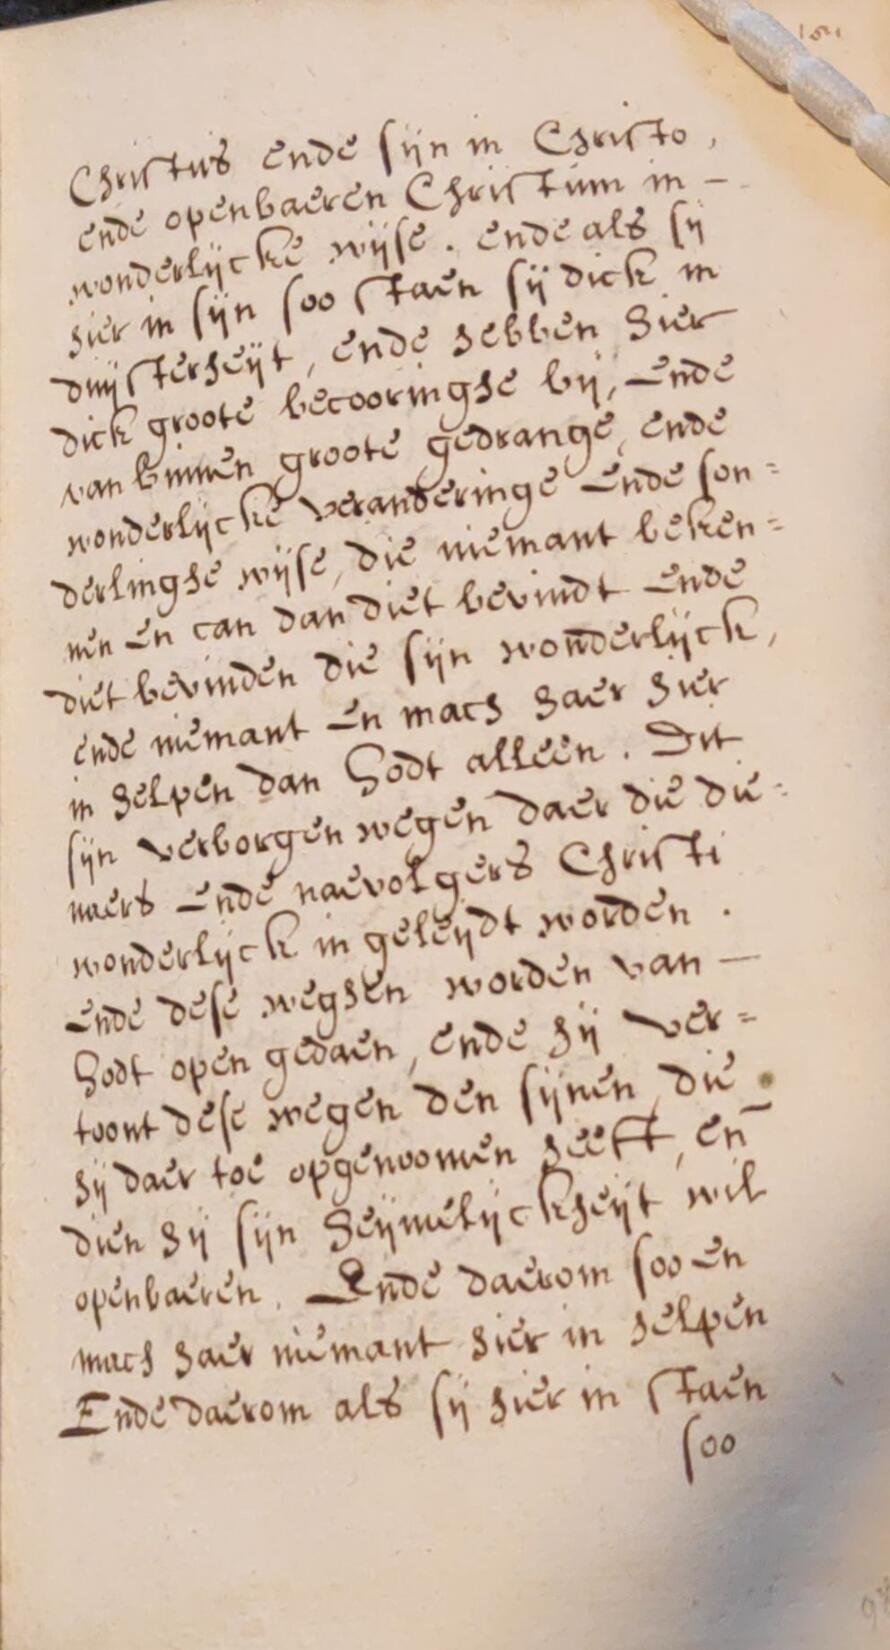 Christus ende sijn in Christo,
ende openbaeren Christum in —
wonderlijcke wijse. ende als sij
hier in sijn soo staen sij dick in
duijsterheijt, ende hebben hier
dick groote becooringhe bij, ende
van binnen groote gedrange, ende
wonderlijcke veranderinge ende son=
derlinghe wijse, die niemant beken=
nen en can dan diet bevindt ende
diet bevinden die sijn wonderlijck,
ende niemant en mach haer hier
in helpen dan Godt alleen. Dit
sijn verborgen wegen daer die die=
naers ende naevolgers Christi
wonderlijck in geleijdt worden.
ende dese weghen worden van —
Godt open gedaen, ende hij ver=
toont dese wegen den sijnen, die
hij daer toe opgenoomen heeft, en̄
dien hij sijn heijmelijckheijt wil
openbaeren. Ende daerom soo en
mach haer niemant hier in helpen
Ende daerom als sij hier in staen
soo